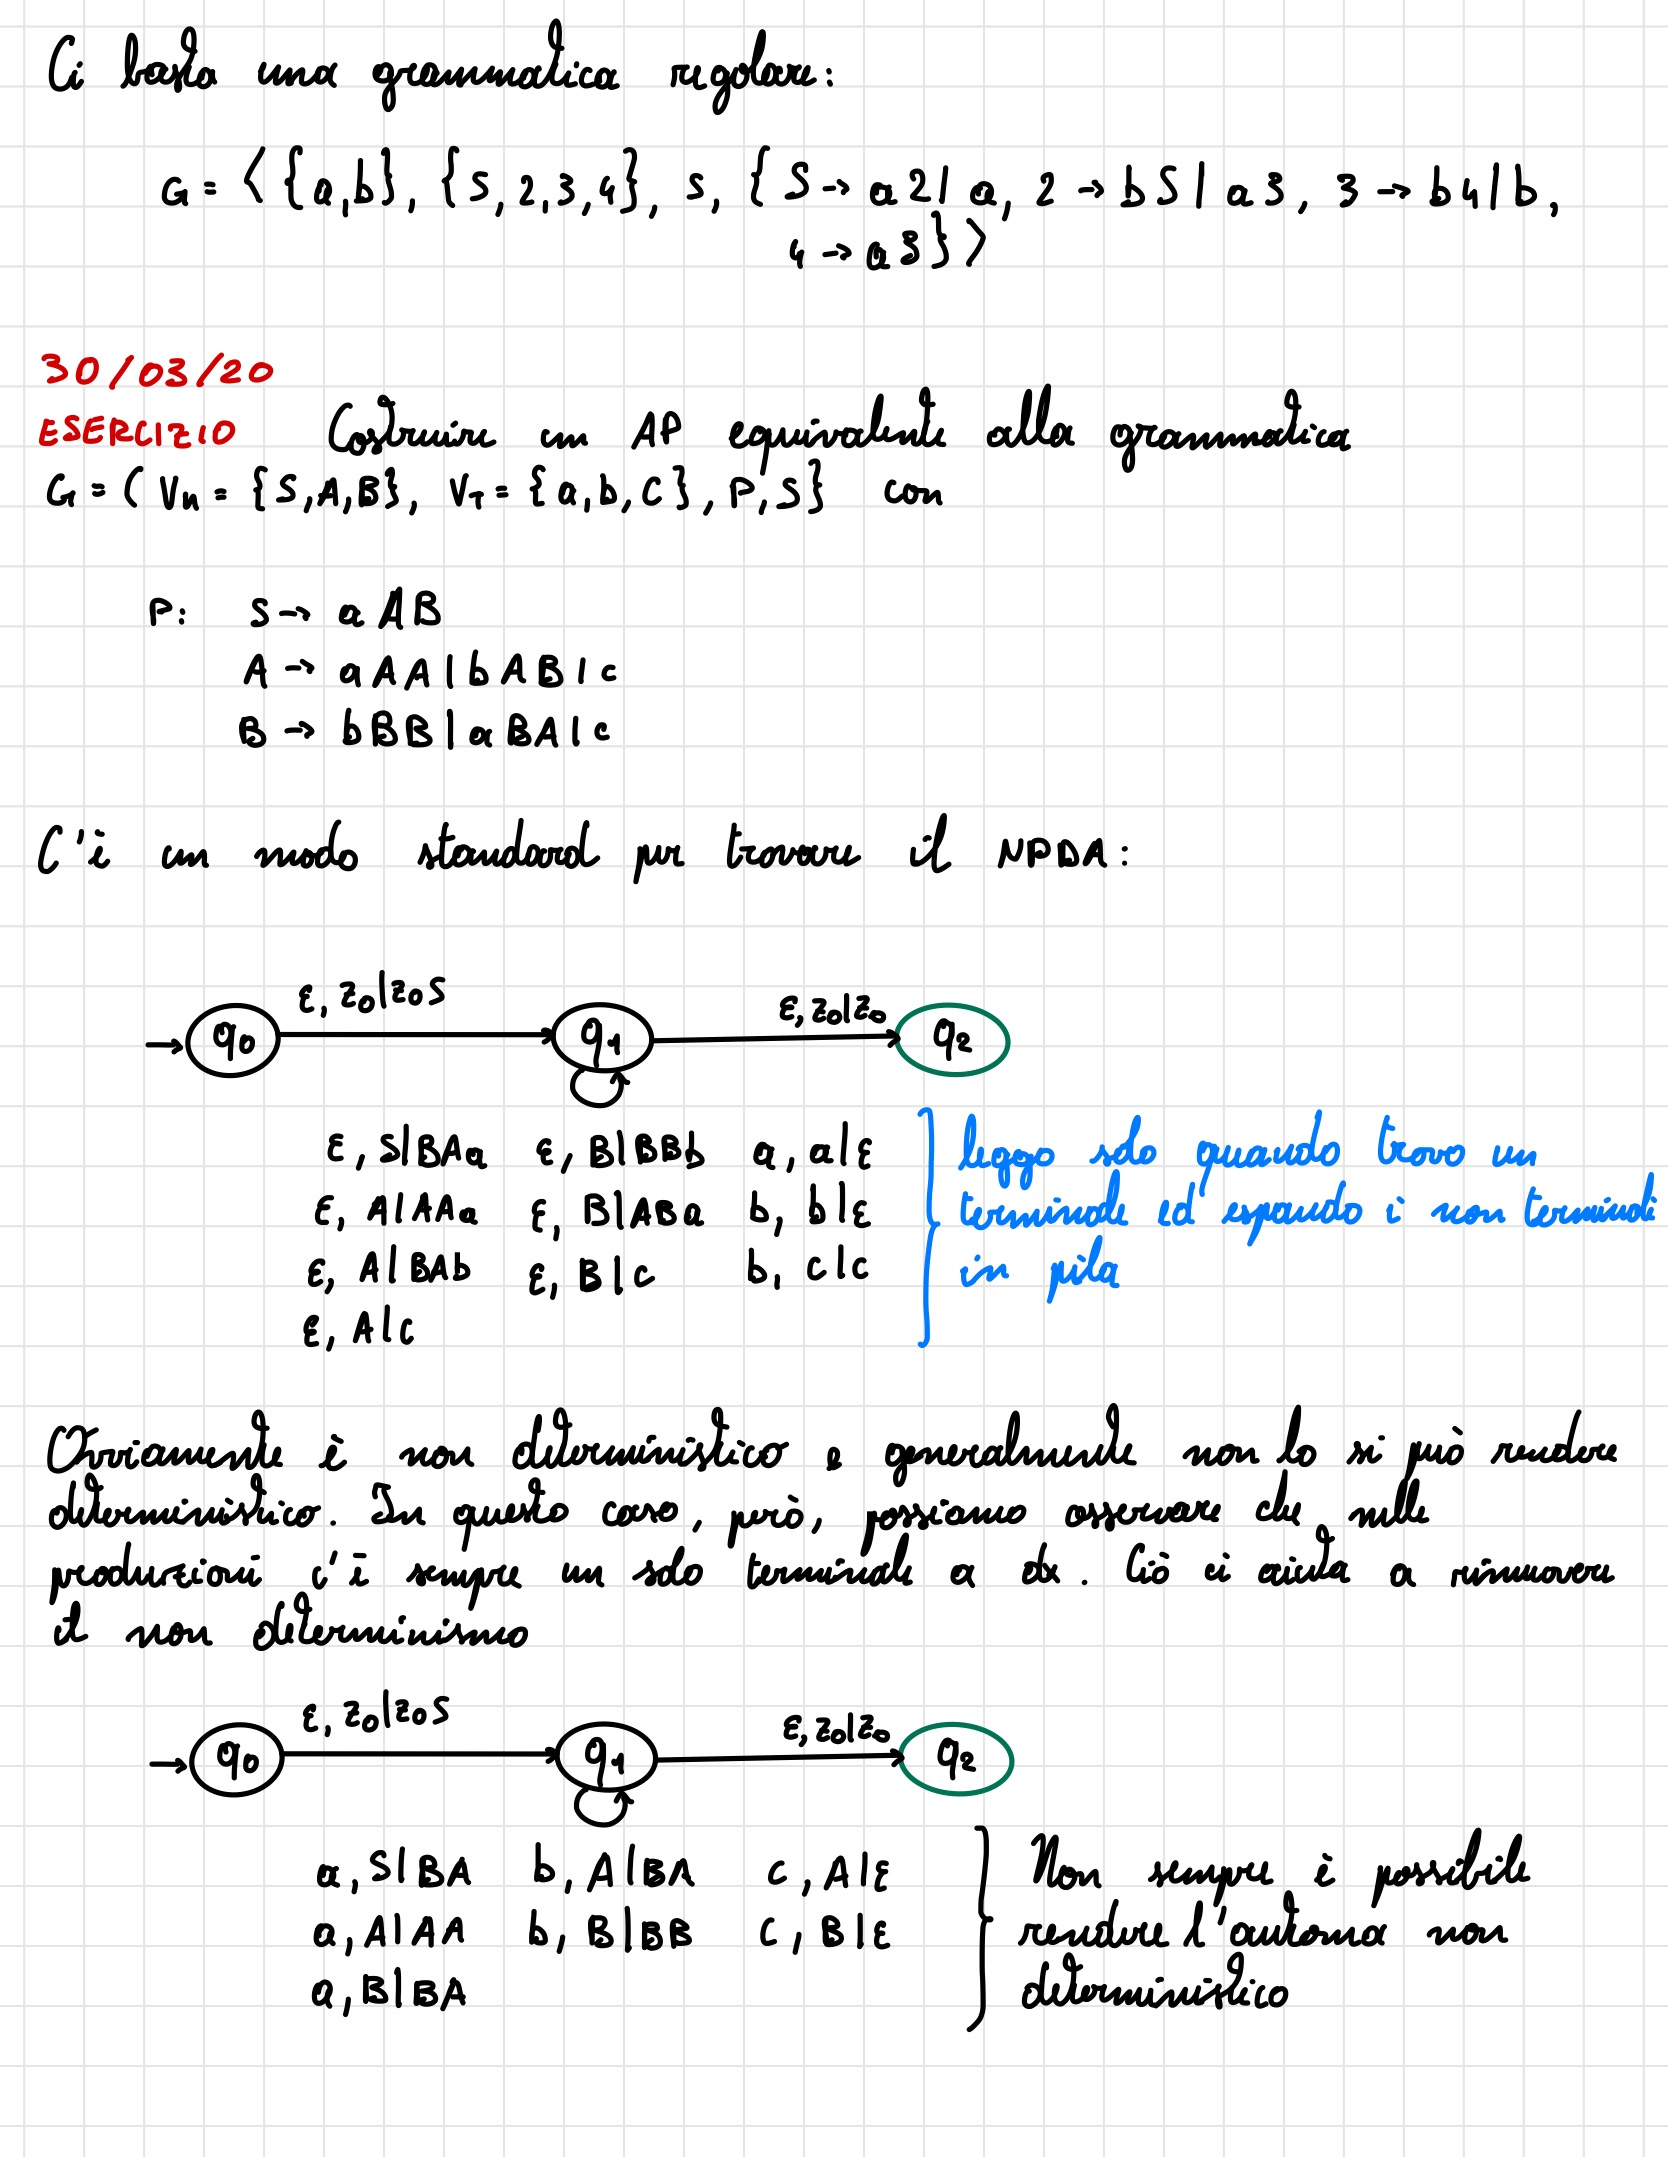 Ci basta una grammatica regolare:
G = ⟨ {a,b}, {S,2,3,4}, S, { S → a2 | a, 2 → bS | a3, 3 → b4 | b,
4 → a3 } ⟩
30/03/20
ESERCIZIO Costruire un AP equivalente alla grammatica
G = ( Vn = {S,A,B}, VT = {a,b,C}, P, S } con
P: S → aAB
A → aAA | bAB | c
B → bBB | aBA | c
C'è un modo standard per trovare il NPDA:
ε, z0|z0S ε, z0|z0
q0 q1 q2
ε, S|BAa ε, B|BBb a, a|ε leggo solo quando trovo un
ε, A|AAa ε, B|ABa b, b|ε terminale ed espando i non terminali
ε, A|BAb ε, B|c b, c|c in pila
ε, A|c
Ovviamente è non deterministico e generalmente non lo si può rendere
deterministico. In questo caso, però, possiamo osservare che nelle
produzioni c'è sempre un solo terminale a dx. Ciò ci aiuta a rimuovere
il non determinismo
ε, z0|z0S ε, z0|z0
q0 q1 q2
a, S|BA b, A|BA c, A|ε Non sempre è possibile
a, A|AA b, B|BB C, B|ε rendere l'automa non
a, B|BA deterministico